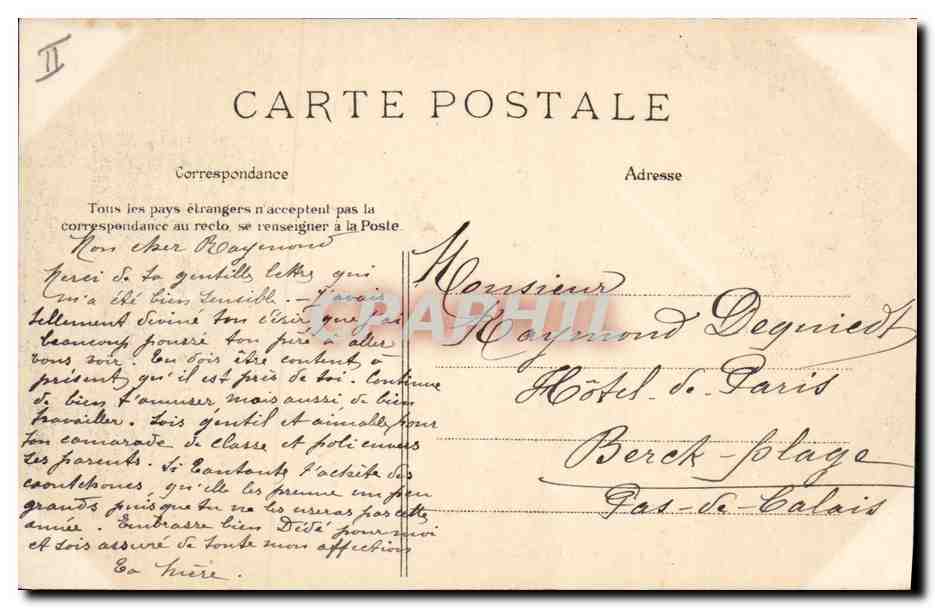 II
CARTE POSTALE
Correspondance
Tous les pays étrangers n'acceptent pas la
correspondance au recto, se renseigner à la Poste.
Mon cher Raymond
Merci de ta gentille lettre qui
m'a été bien sensible. — J'avais
tellement deviné ton désir que j'ai
beaucoup poussé ton père à aller
vous voir. Tu dois être content à
présent qu'il est près de toi. Continue
de bien t'amuser mais aussi de bien
travailler. Sois gentil et aimable pour
ton camarade de classe et poli envers
ses parents. Si tantante t'achète des
caoutchoucs, qu'elle les prenne un peu
grands puisque tu ne les useras pas cette
année. Embrasse bien Dédé pour moi
et sois assuré de toute mon affection
Ta mère.
Adresse
Monsieur
Raymond Dequiedt
Hôtel de Paris
Berck-plage
Pas-de-Calais
CPAPHIL